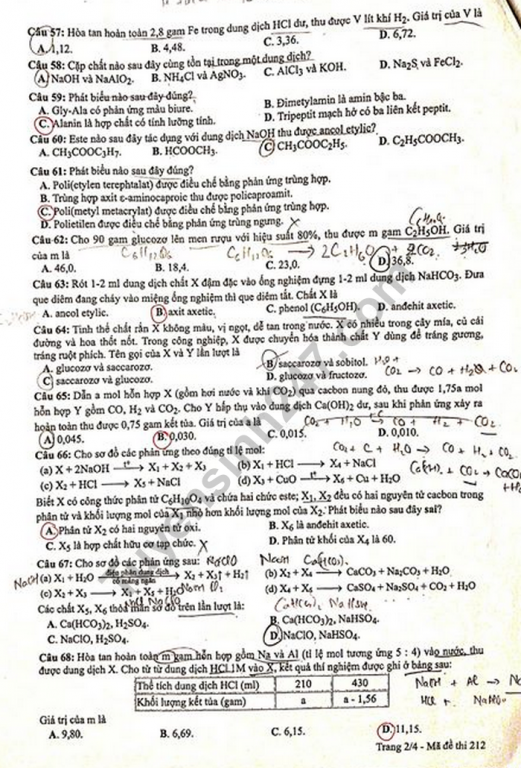 Câu 57: Hòa tan hoàn toàn 2,8 gam Fe trong dung dịch HCl dư, thu được V lít khí H2. Giá trị của V là
A. 1,12. B. 4,48. C. 3,36. D. 6,72.
Câu 58: Cặp chất nào sau đây cùng tồn tại trong một dung dịch?
A. NaOH và NaAlO2. B. NH4Cl và AgNO3. C. AlCl3 và KOH. D. Na2S và FeCl2.
Câu 59: Phát biểu nào sau đây đúng?
A. Gly-Ala có phản ứng màu biure. B. Đimetylamin là amin bậc ba.
C. Alanin là hợp chất có tính lưỡng tính. D. Tripeptit mạch hở có ba liên kết peptit.
Câu 60: Este nào sau đây tác dụng với dung dịch NaOH thu được ancol etylic?
A. CH3COOC3H7. B. HCOOCH3. C. CH3COOC2H5. D. C2H5COOCH3.
Câu 61: Phát biểu nào sau đây đúng?
A. Poli(etylen terephtalat) được điều chế bằng phản ứng trùng hợp.
B. Trùng hợp axit ε-aminocaproic thu được policaproamit.
C. Poli(metyl metacrylat) được điều chế bằng phản ứng trùng hợp.
D. Polietilen được điều chế bằng phản ứng trùng ngưng. X
Câu 62: Cho 90 gam glucozơ lên men rượu với hiệu suất 80%, thu được m gam C2H5OH. Giá trị
của m là C6H12O6 C6H12O6 → 2C2H6O + 2CO2
A. 46,0. B. 18,4. C. 23,0. D. 36,8.
Câu 63: Rót 1-2 ml dung dịch chất X đậm đặc vào ống nghiệm đựng 1-2 ml dung dịch NaHCO3. Đưa
que diêm đang cháy vào miệng ống nghiệm thì que diêm tắt. Chất X là
A. ancol etylic. B. axit axetic. C. phenol (C6H5OH). D. anđehit axetic.
Câu 64: Tinh thể chất rắn X không màu, vị ngọt, dễ tan trong nước. X có nhiều trong cây mía, củ cải
đường và hoa thốt nốt. Trong công nghiệp, X được chuyển hóa thành chất Y dùng để tráng gương,
tráng ruột phích. Tên gọi của X và Y lần lượt là
A. glucozơ và saccarozơ. B. saccarozơ và sobitol.
C. saccarozơ và glucozơ. D. glucozơ và fructozơ.
Câu 65: Dẫn a mol hỗn hợp X (gồm hơi nước và khí CO2) qua cacbon nung đỏ, thu được 1,75a mol
hỗn hợp Y gồm CO, H2 và CO2. Cho Y hấp thụ vào dung dịch Ca(OH)2 dư, sau khi phản ứng xảy ra
hoàn toàn thu được 0,75 gam kết tủa. Giá trị của a là
A. 0,045. B. 0,030. C. 0,015. D. 0,010.
Câu 66: Cho sơ đồ các phản ứng theo đúng tỉ lệ mol:
(a) X + 2NaOH → X1 + X2 + X3 (b) X1 + HCl → X4 + NaCl
(c) X2 + HCl → X5 + NaCl (d) X3 + CuO → X6 + Cu + H2O
Biết X có công thức phân tử C6H10O4 và chứa hai chức este; X1, X2 đều có hai nguyên tử cacbon trong
phân tử và khối lượng mol của X1 nhỏ hơn khối lượng mol của X2. Phát biểu nào sau đây sai?
A. Phân tử X2 có hai nguyên tử oxi. B. X6 là anđehit axetic.
C. X5 là hợp chất hữu cơ tạp chức. X D. Phân tử khối của X4 là 60.
Câu 67: Cho sơ đồ các phản ứng sau:
(a) X1 + H2O điện phân dung dịch có màng ngăn → X2 + X3↑ + H2↑ (b) X2 + X4 → CaCO3 + Na2CO3 + H2O
(c) X2 + X3 → X1 + X5 + H2O (d) X4 + X6 → CaSO4 + Na2SO4 + CO2 + H2O
Các chất X5, X6 thỏa mãn sơ đồ trên lần lượt là:
A. Ca(HCO3)2, H2SO4. B. Ca(HCO3)2, NaHSO4.
C. NaClO, H2SO4. D. NaClO, NaHSO4.
Câu 68: Hòa tan hoàn toàn m gam hỗn hợp gồm Na và Al (tỉ lệ mol tương ứng 5 : 4) vào nước, thu
được dung dịch X. Cho từ từ dung dịch HCl 1M vào X, kết quả thí nghiệm được ghi ở bảng sau:
Thể tích dung dịch HCl (ml) 210 430
Khối lượng kết tủa (gam) a a - 1,56
Giá trị của m là
A. 9,80. B. 6,69. C. 6,15. D. 11,15.
Trang 2/4 - Mã đề thi 212